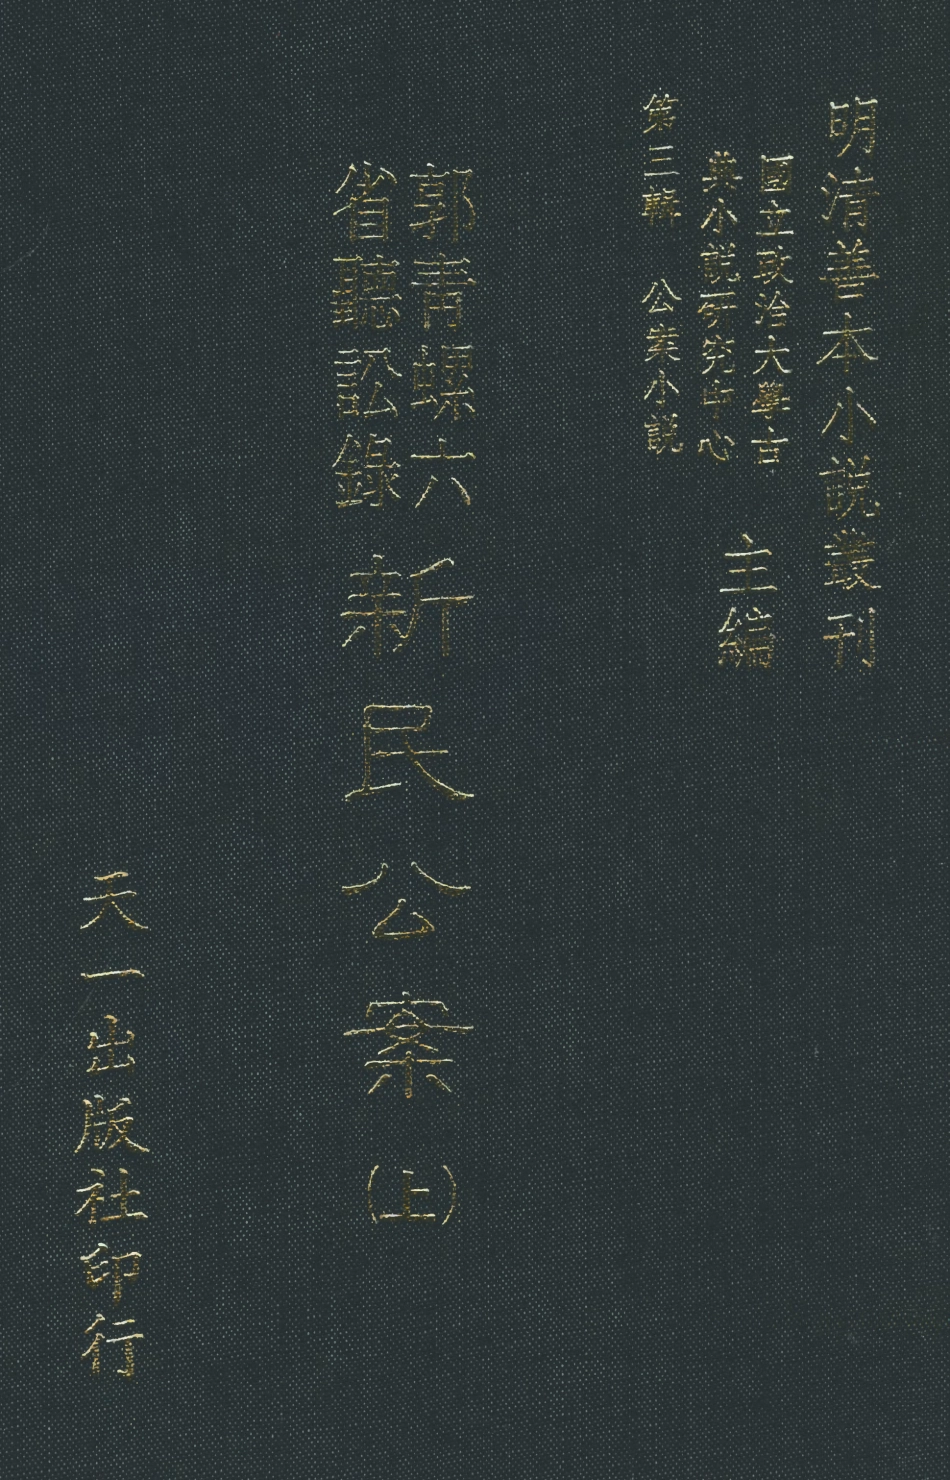 明清善本小説叢刊
國立政治大學古
典小説研究中心
主編
第三輯　公案小説
郭青螺六
省聽訟錄
新民公案(上)
天一出版社印行